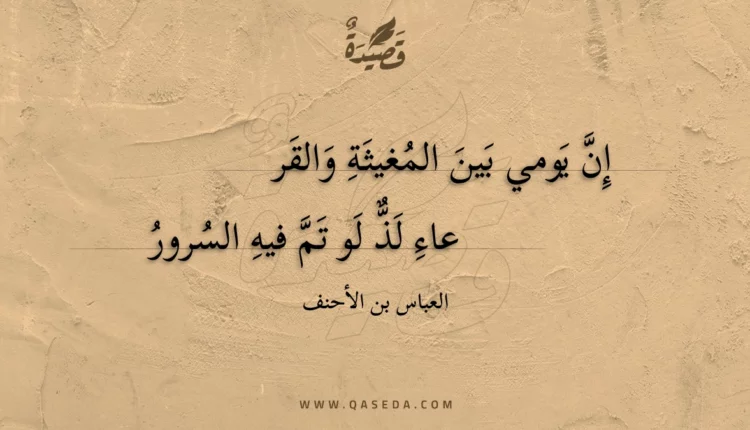 قَصِيدَةٌ
إِنَّ يَومي بَينَ المُغيثَةِ وَالقَر
عاءِ لَذٌّ لَو تَمَّ فيهِ السُرورُ
العباس بن الأحنف
WWW.QASEDA.COM